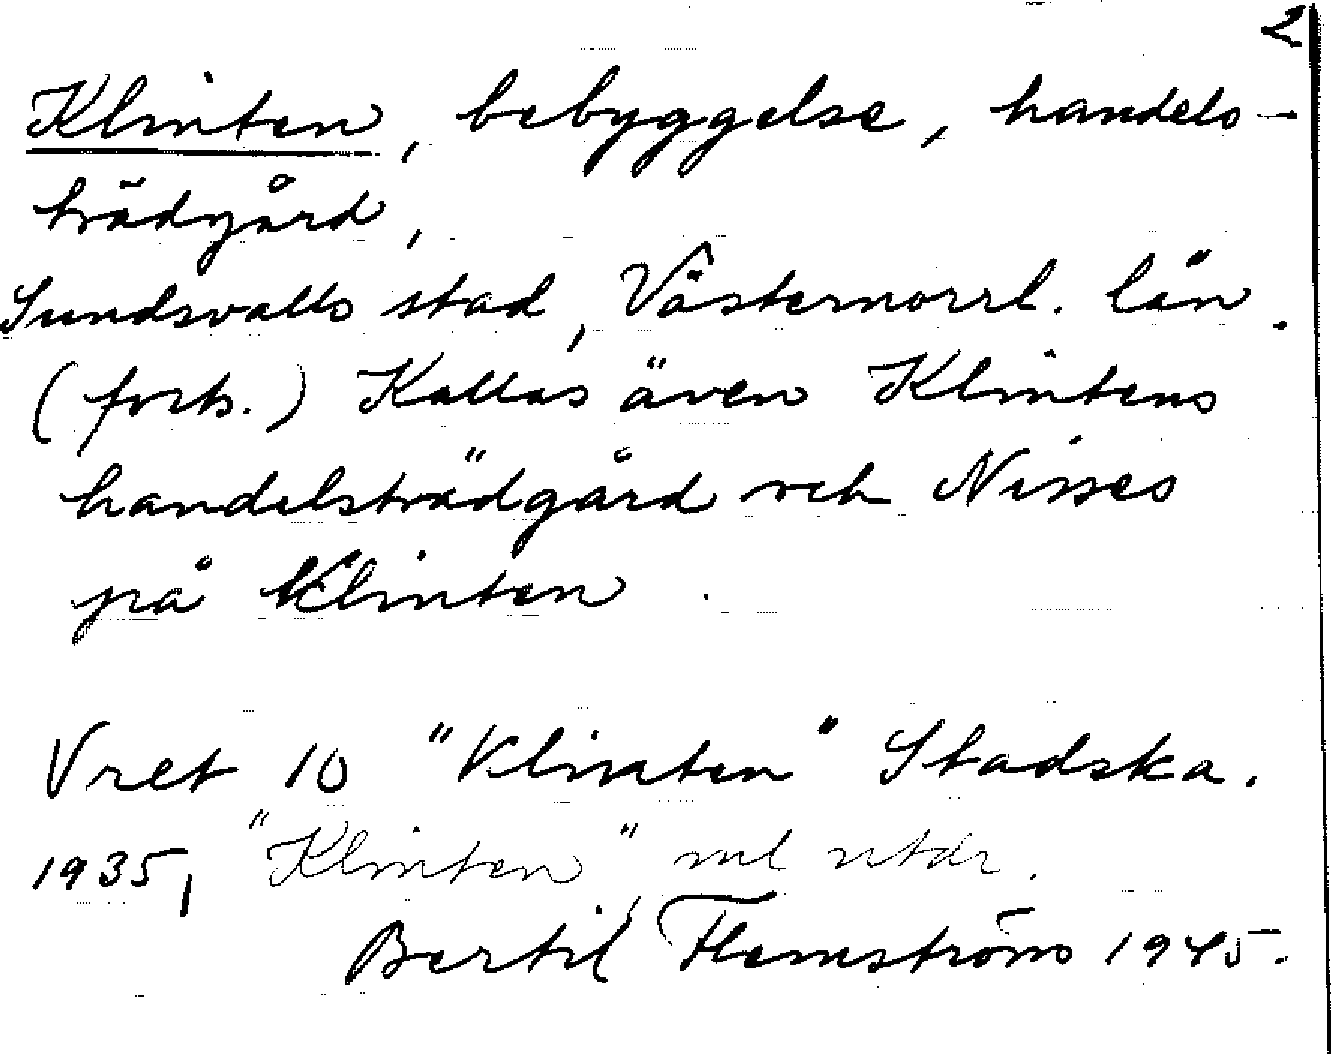 2
Klinten, bebyggelse, handels-
trädgård,
Sundsvalls stad, Västernorrl. län.
(forts.) Kallas även Klintens
handelsträdgård och Nisses
på Klinten.
Vret 10 "Klinten" Stadska.
1935, "Klinten" enl utdr.
Bertil Flemström 1945.